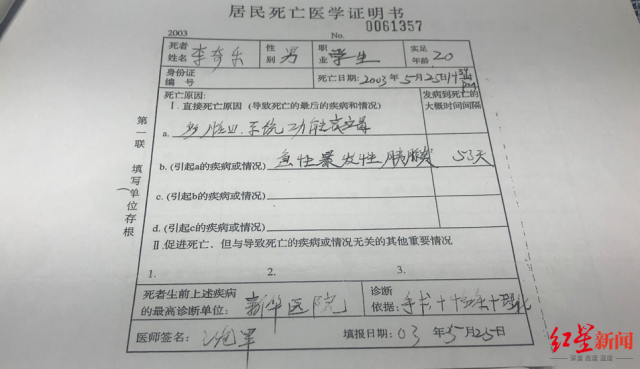 居民死亡医学证明书
2003 No. 0061357
死者姓名 李奇乐 性别 男 职业 学生 实足年龄 20
身份证编号 死亡日期:2003年5月25日
死亡原因: 发病到死亡的大概时间间隔
Ⅰ.直接死亡原因(导致死亡的最后的疾病和情况)
a. 系统功能衰竭
b.(引起a的疾病或情况) 急性暴发性胰腺炎 53天
c.(引起b的疾病或情况)
d.(引起c的疾病或情况)
Ⅱ.促进死亡、但与导致死亡的疾病或情况无关的其他重要情况
1. 2. 3.
死者生前上述疾病的最高诊断单位: 新华医院 诊断依据: 手术+
医师签名: 填报日期:03年5月25日
第一联 填写单位存根
红星新闻
深度 态度 温度